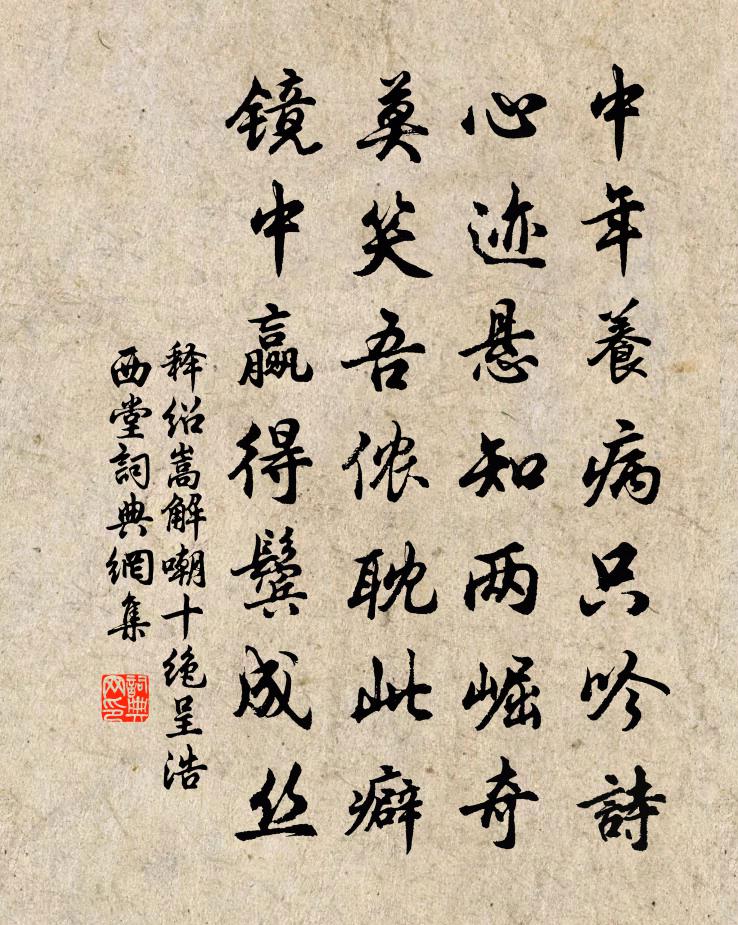 中年養病只吟詩
心迹悬知两崛奇
莫笑吾侬耽此癖
镜中赢得鬓成丝
释绍嵩解嘲十绝呈浩
西堂詞典網集
詞典网印